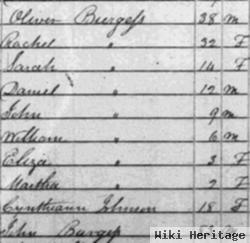 Oliver Burgess 38 m
Rachel " 32 F
Sarah " 14 F
Daniel " 12 m
John " 9 m
William " 6 m
Eliza " 3 F
Martha " 2 F
Cyntheann Johnson 18 F
John Burgess
Wiki Heritage